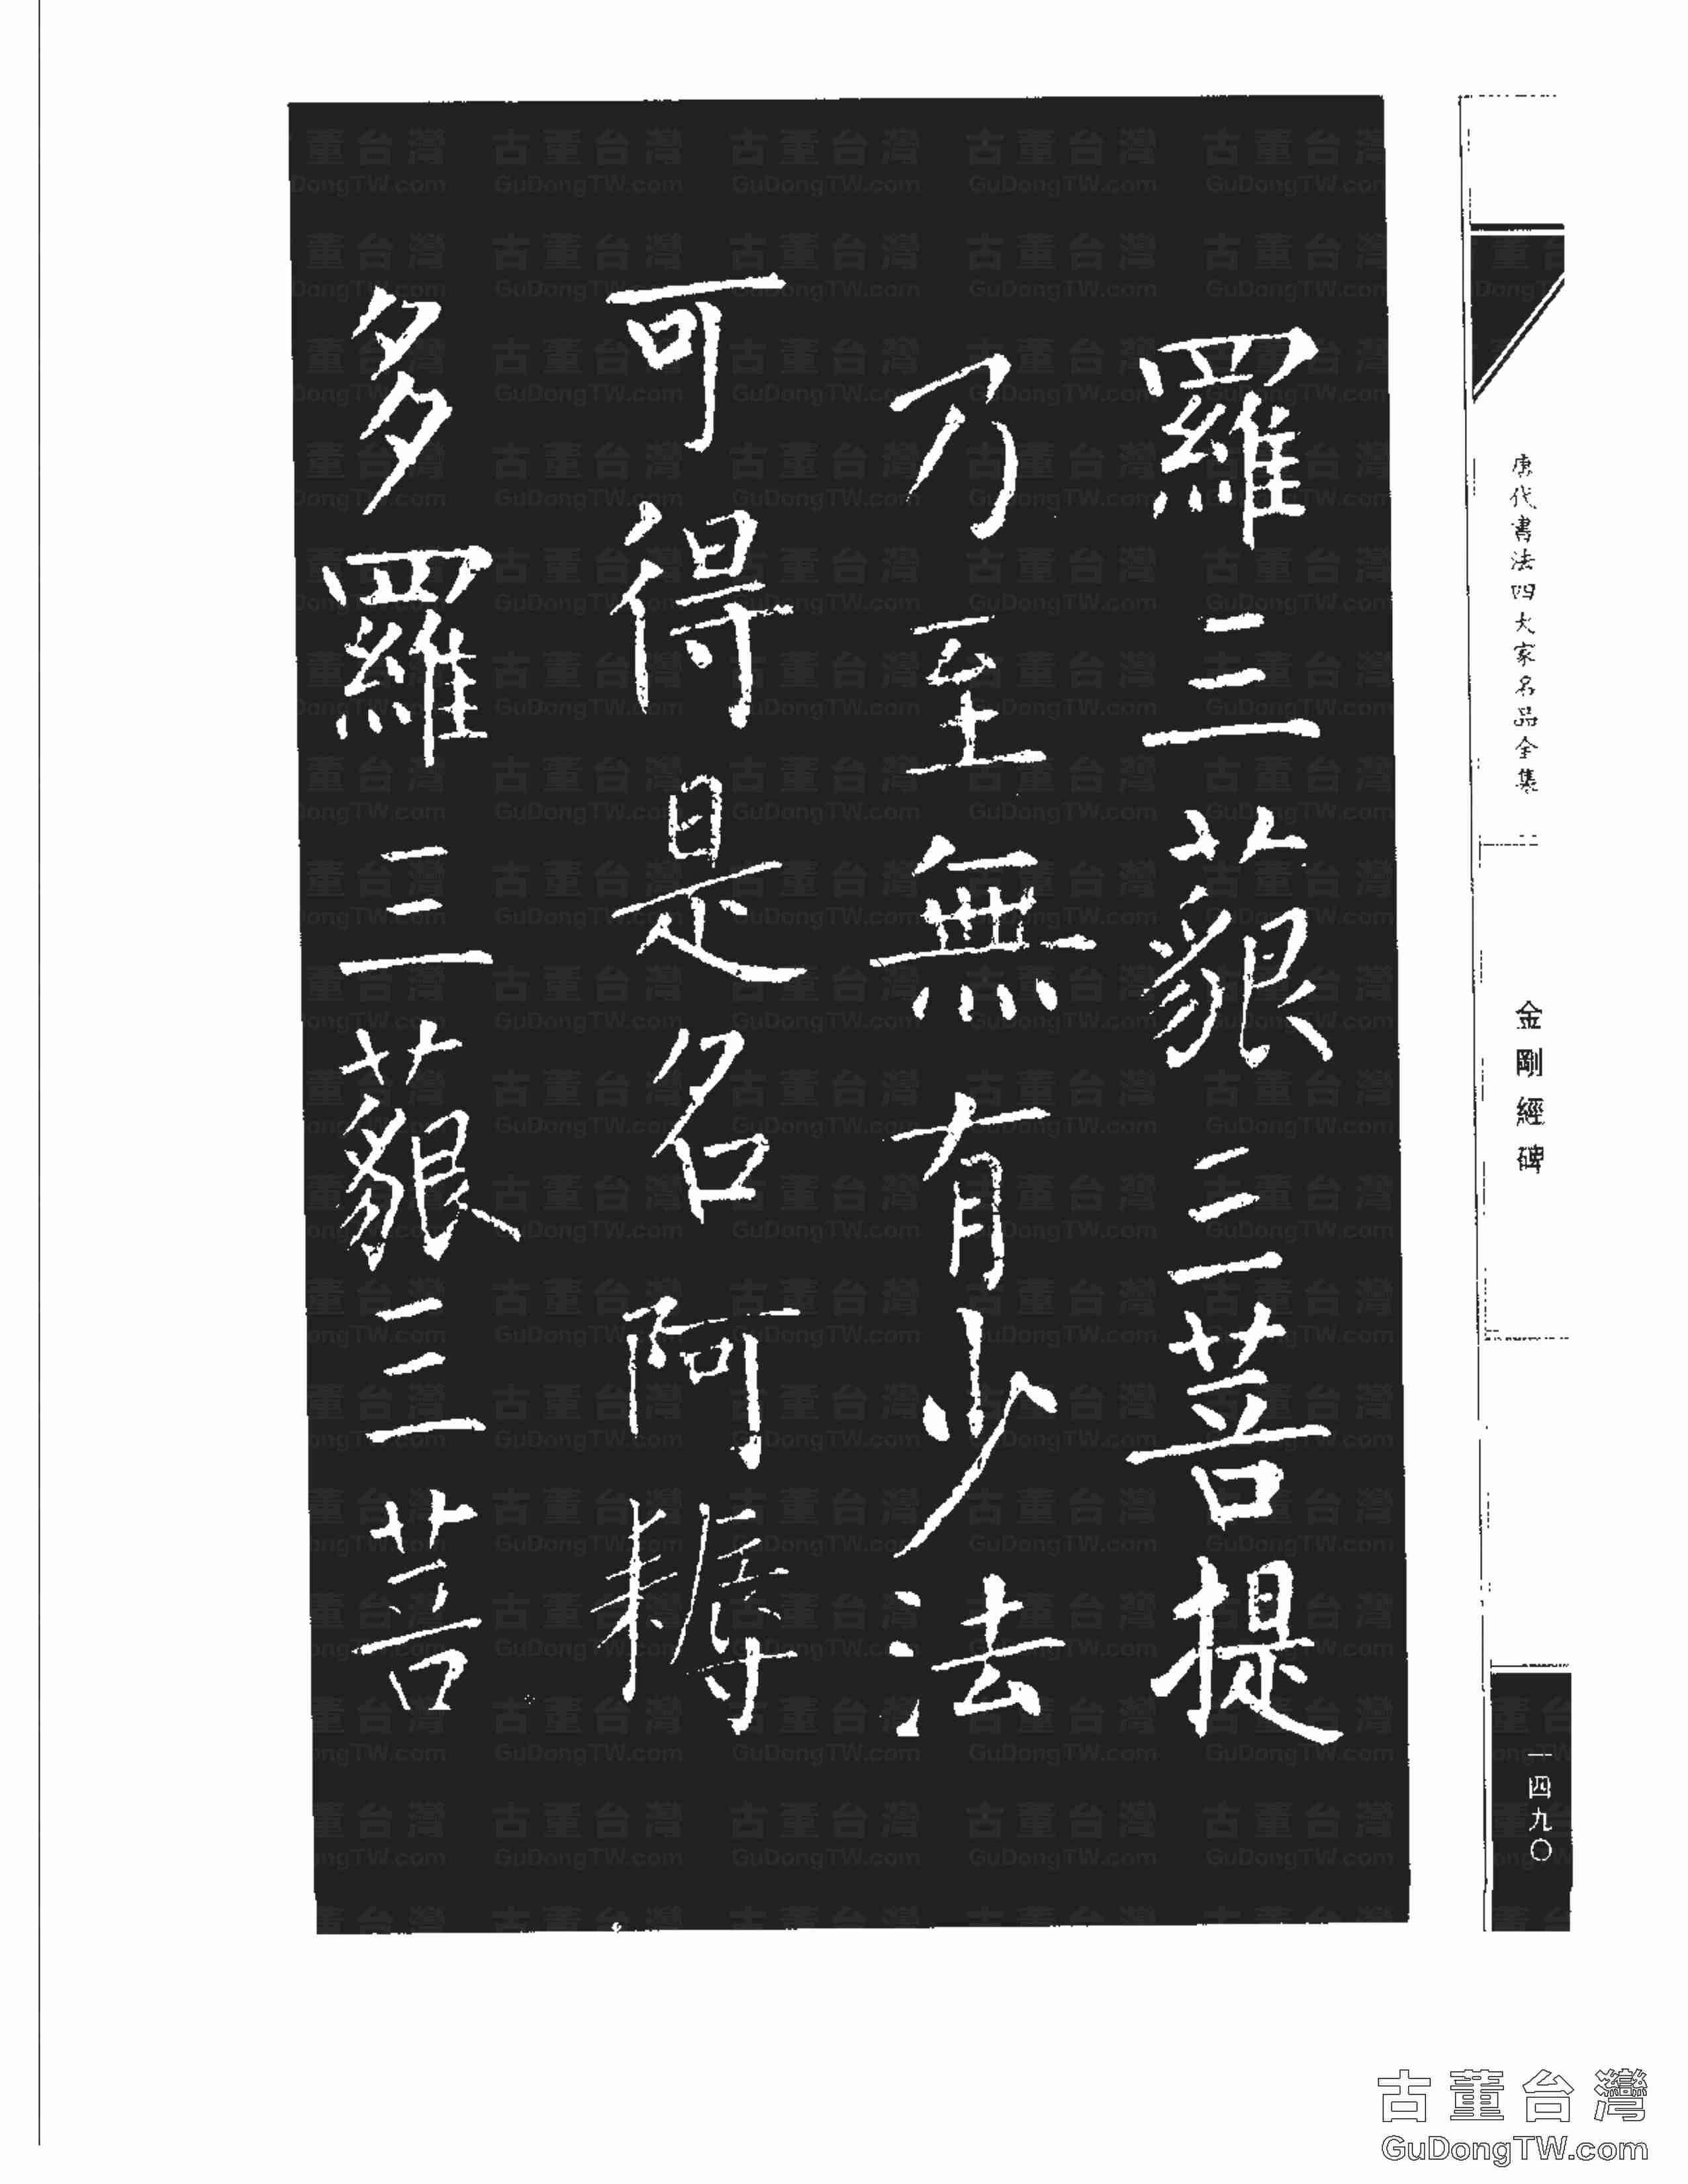 羅三藐三菩提
乃至無有少法
可得是名阿耨
多羅三藐三菩
唐代書法四大家名品全集
金剛經碑
一四九〇
古董台灣
GuDongTW.com